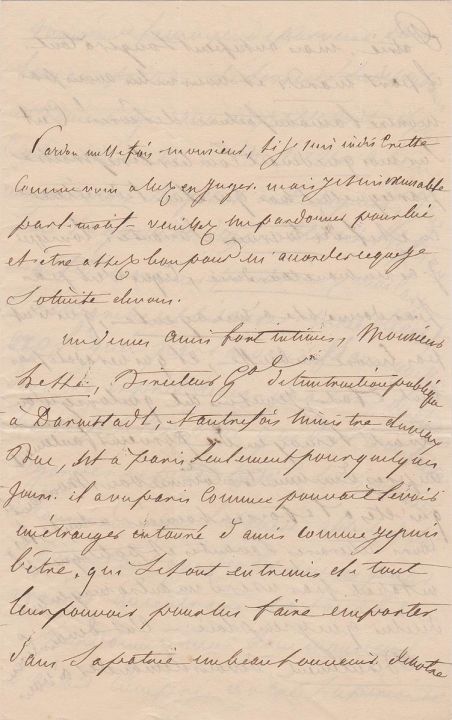 Pardon mille fois monsieur, si je suis indiscrette
comme vous allez en juger. mais je suis excusable
par motif - veuillez me pardonner pour lui
et être assez bon pour m'accorder ce que je
sollicite de vous.
un de mes amis fort intimes, Monsieur
Directeur Gal de l'instruction publique
à Darmstadt, et autrefois ministre du vieux
Duc, est à paris seulement pour quelques
Jours. il a vu paris comme pouvait le voir
un étranger entouré d'amis comme je puis
l'être, qui se sont entremis de tout
leur pouvoir pour lui faire emporter
dans sa patrie un beau souvenir de notre